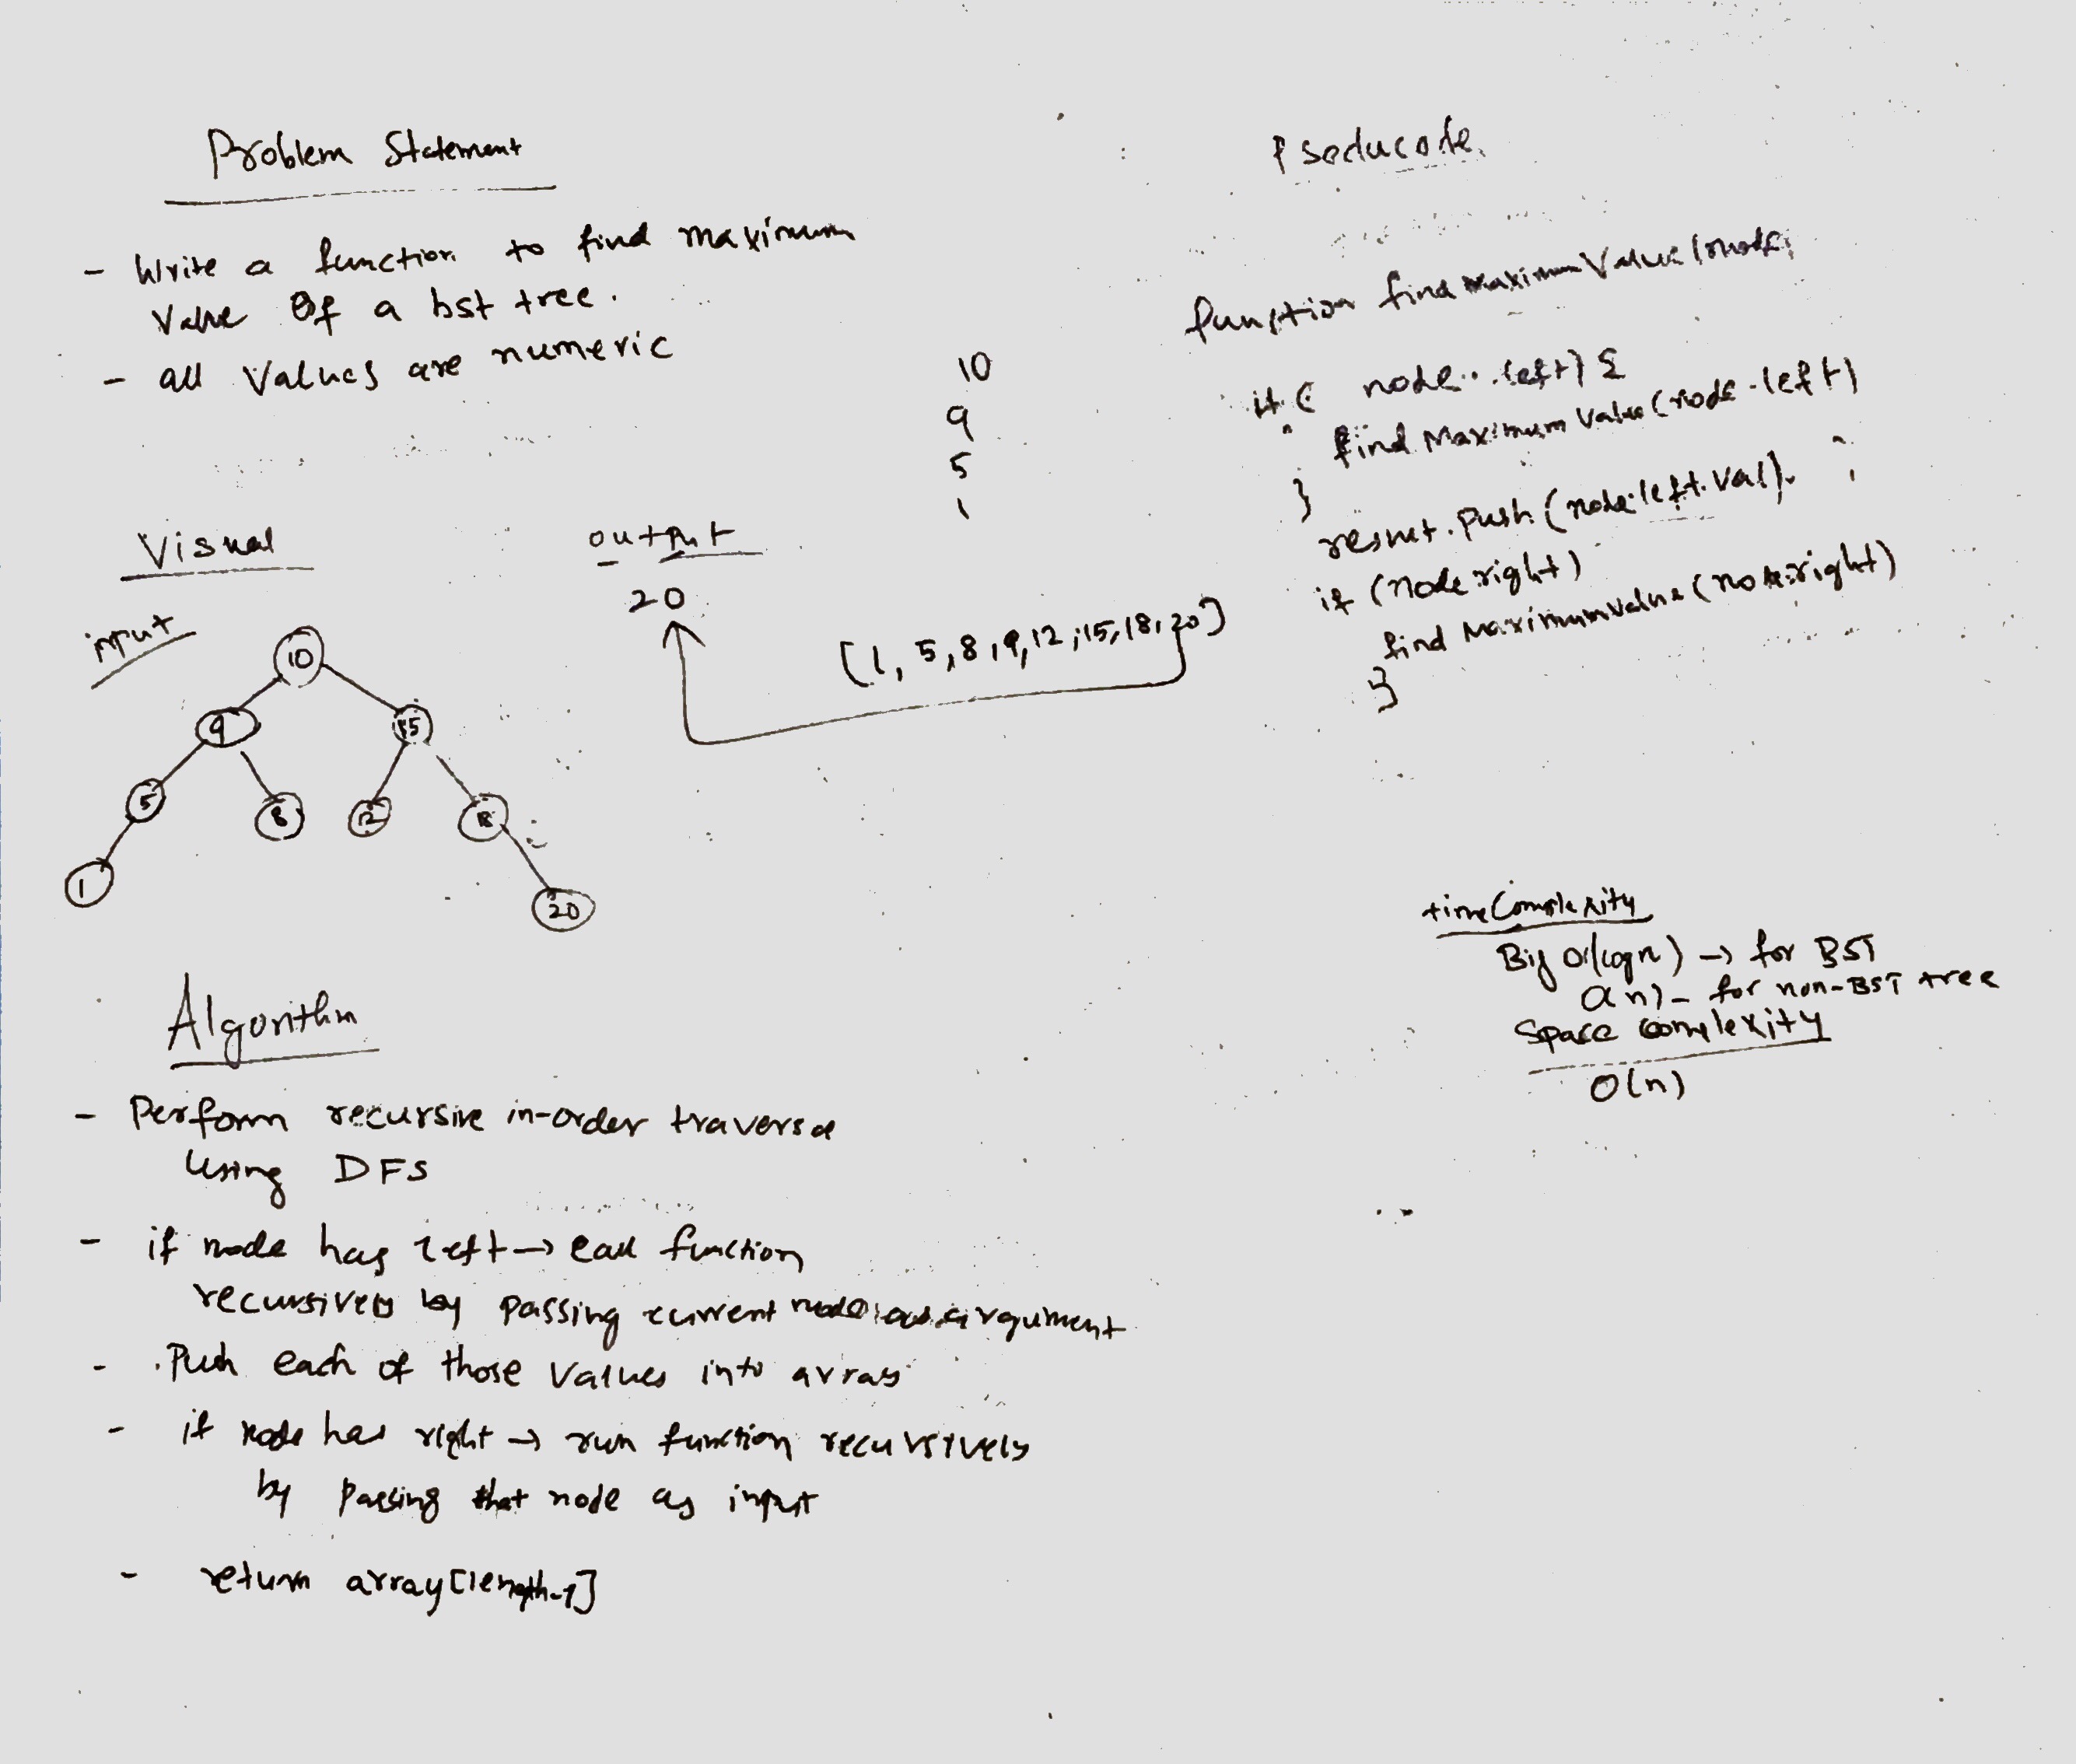 Problem Statement
- Write a function to find maximum
Value Of a bst tree.
- all Values are numeric
10
9
5
1
Visual
input
10
9
15
5
8
12
18
1
20
output
20
[1, 5, 8, 9, 12, 15, 18, 20]
Algorithm
- Perform recursive in-order traversal
Using DFS
- if node has left → call function
recursively by passing current node as argument
- Push each of those Values into array
- if node has right → run function recursively
by passing that node as input
- return array[length-1]
Pseducode
function find maximum Value (node)
if ( node.left) {
find Maximum Value (node.left)
}
result.push (node.left.val)
if (node.right)
find MaximumValue (node.right)
}
time Complexity
Big O(log n) → for BST
O(n) - for non-BST tree
Space complexity
O(n)